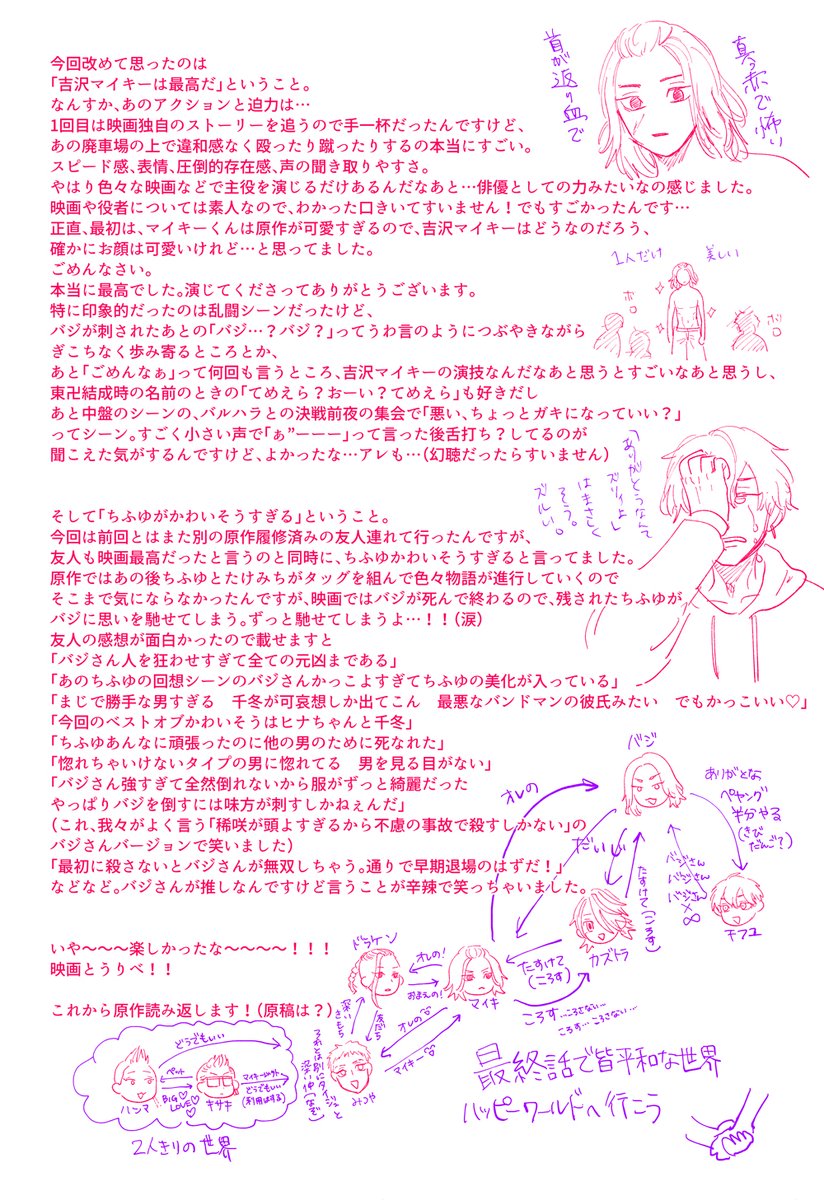 今回改めて思ったのは
「吉沢マイキーは最高だ」ということ。
なんすか、あのアクションと迫力は…
1回目は映画独自のストーリーを追うので手一杯だったんですけど、
あの廃車場の上で違和感なく殴ったり蹴ったりするの本当にすごい。
スピード感、表情、圧倒的存在感、声の聞き取りやすさ。
やはり色々な映画などで主役を演じるだけあるんだなあと…俳優としての力みたいなの感じました。
映画や役者については素人なので、わかった口きいてすいません！でもすごかったんです…
正直、最初は、マイキーくんは原作が可愛すぎるので、吉沢マイキーはどうなのだろう、
確かにお顔は可愛いけれど…と思ってました。
ごめんなさい。
本当に最高でした。演じてくださってありがとうございます。
特に印象的だったのは乱闘シーンだったけど、
バジが刺されたあとの「バジ…？バジ？」ってうわ言のようにつぶやきながら
ぎこちなく歩み寄るところとか、
あと「ごめんなぁ」って何回も言うところ、吉沢マイキーの演技なんだなあと思うとすごいなあと思うし、
東卍結成時の名前のときの「てめえら？おーい？てめえら」も好きだし
あと中盤のシーンの、バルハラとの決戦前夜の集会で「悪い、ちょっとガキになっていい？」
ってシーン。すごく小さい声で「ぁ”ーーー」って言った後舌打ち？してるのが
聞こえた気がするんですけど、よかったな…アレも…（幻聴だったらすいません）
真っ赤で怖い
首が返り血で
1人だけ 美しい
ボロ
ボロ
「ありがとうなんて
ズリィよ」
はまさしく
そう。
ズルい。
そして「ちふゆがかわいそうすぎる」ということ。
今回は前回とはまた別の原作履修済みの友人連れて行ったんですが、
友人も映画最高だったと言うのと同時に、ちふゆかわいそうすぎると言ってました。
原作ではあの後ちふゆとたけみちがタッグを組んで色々物語が進行していくので
そこまで気にならなかったんですが、映画ではバジが死んで終わるので、残されたちふゆが
バジに思いを馳せてしまう。ずっと馳せてしまうよ…！！（涙）
友人の感想が面白かったので載せますと
「バジさん人を狂わせすぎて全ての元凶まである」
「あのちふゆの回想シーンのバジさんかっこよすぎてちふゆの美化が入っている」
「まじで勝手な男すぎる　千冬が可哀想しか出てこん　最悪なバンドマンの彼氏みたい　でもかっこいい♡」
「今回のベストオブかわいそうはヒナちゃんと千冬」
「ちふゆあんなに頑張ったのに他の男のために死なれた」
「惚れちゃいけないタイプの男に惚れてる　男を見る目がない」
「バジさん強すぎて全然倒れないから服がずっと綺麗だった
やっぱりバジを倒すには味方が刺すしかねぇんだ」
（これ、我々がよく言う「稀咲が頭よすぎるから不慮の事故で殺すしかない」の
バジさんバージョンで笑いました）
「最初に殺さないとバジさんが無双しちゃう。通りで早期退場のはずだ！」
などなど。バジさんが推しなんですけど言うことが辛辣で笑っちゃいました。
いや〜〜〜楽しかったな〜〜〜〜！！！
映画とうりべ！！
これから原作読み返します！（原稿は？）
バジ
オレの
だいじ
ありがとな
ペヤング
半分やる
(きび
だんご?)
バジさん
バジさん
バジさん
×
∞
チフユ
たすけて(ころす)
カズトラ
たすけて
(ころす)
ころす…ころさない…
ころす…ころさない…
マイキ
ドラケン
オレの!
おまえの!
深い
きもち
友だち
オレの♡
マイキー♡
みつや
それとは別にタイジュと
深い仲(なぞ)
どうでもいい
ペット
BIG♡
LOVE♡
ハンマ
キサキ
どうでもいい
(利用はする)
2人きりの世界
最終話で皆平和な世界
ハッピーワールドへ行こう